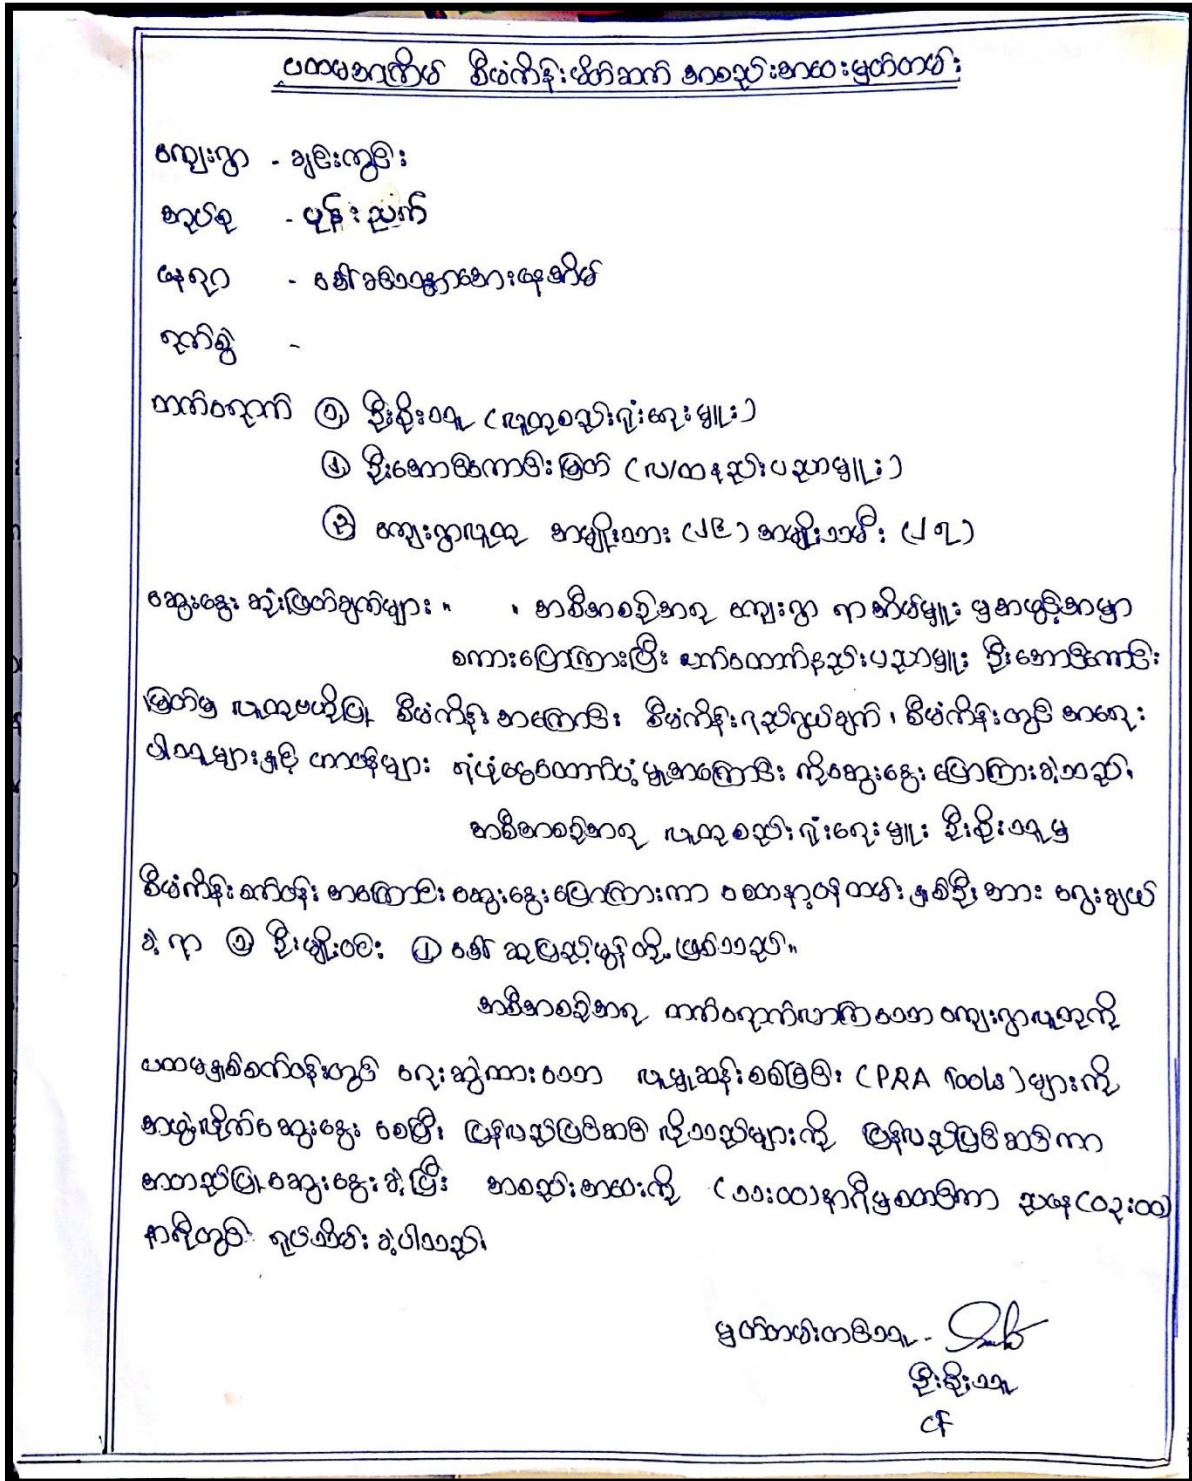 ပထမအကြိမ် စီမံကိန်းမိတ်ဆက် အစည်းအဝေးမှတ်တမ်း
ကျေးရွာ - ချင်းကွင်း
အုပ်စု - ပုန်းညက်
နေရာ - ဒေါ် အေးနေအိမ်
ရက်စွဲ -
တက်ရောက် ၁ ဦးစိုးသူ (လူထုစည်းရုံးရေးမှူး)
၂ ဦးအောင်ကောင်းမြတ် (လ/ထနည်းပညာမှူး)
၃ ကျေးရွာလူထု အမျိုးသား (၂၆) အမျိုးသမီး (၂၇)
ဆွေးနွေး ဆုံးဖြတ်ချက်များ။ ၊ အစီအစဉ်အရ ကျေးရွာ ရာအိမ်မှူး မှအဖွင့်အမှာ
စကားပြောကြားပြီး လက်ထောက်နည်းပညာမှူး ဦးအောင်ကောင်း
မြတ်မှ လူထုဗဟိုပြု စီမံကိန်း အကြောင်း စီမံကိန်းရည်ရွယ်ချက်၊ စီမံကိန်းတွင် အရေး
ပါသူများနှင့် တာဝန်များ ရံပုံငွေထောက်ပံ့မှုအကြောင်း ကိုဆွေးနွေး ပြောကြားခဲ့သည်၊
အစီအစဉ်အရ လူထုစည်းရုံးရေးမှူး ဦးစိုးသူမှ
စီမံကိန်းစက်ဝန်း အကြောင်း ဆွေးနွေးပြောကြားကာ စေတနာ့ဝန်ထမ်း နှစ်ဦး အား ရွေးချယ်
ခဲ့ရာ ၁ ဦးမျိုးဝင်း ၂ ဒေါ် ဆုမြည့်မွန် တို့ ဖြစ်သည်။
အစီအစဉ်အရ တက်ရောက်လာကြသော ကျေးရွာလူထုကို
ပထမနှစ်စက်ဝန်းတွင် ရေးဆွဲထားသော လူမှုဆန်းစစ်ခြင်း (PRA Tools) များကို
အဖွဲ့လိုက်ဆွေးနွေး စေပြီး ပြန်လည်ပြင်ဆင် လိုသည်များကို ပြန်လည်ပြင်ဆင်ကာ
အတည်ပြုဆွေးနွေးခဲ့ပြီး အစည်းအဝေးကို (၁၁:၀၀) နာရီမှစတင်ကာ ညနေ (၀၃:၀၀)
နာရီတွင် ရုပ်သိမ်း ခဲ့ပါသည်၊
မှတ်တမ်းတင်သူ -
ဦးစိုးသူ
CF